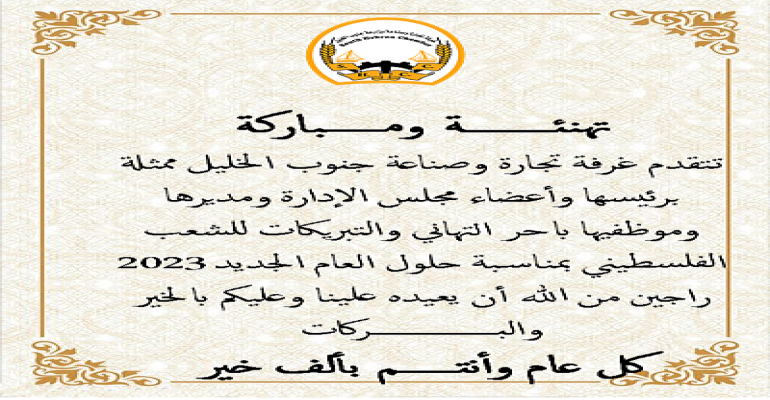 South Hebron Chamber
تهنئة ومباركة
تتقدم غرفة تجارة وصناعة جنوب الخليل ممثلة
برئيسها وأعضاء مجلس الإدارة ومديرها
وموظفيها باحر التهاني والتبريكات للشعب
الفلسطيني بمناسبة حلول العام الجديد 2023
راجين من الله أن يعيده علينا وعليكم بالخير
والبركات
كل عام وأنتم بألف خير